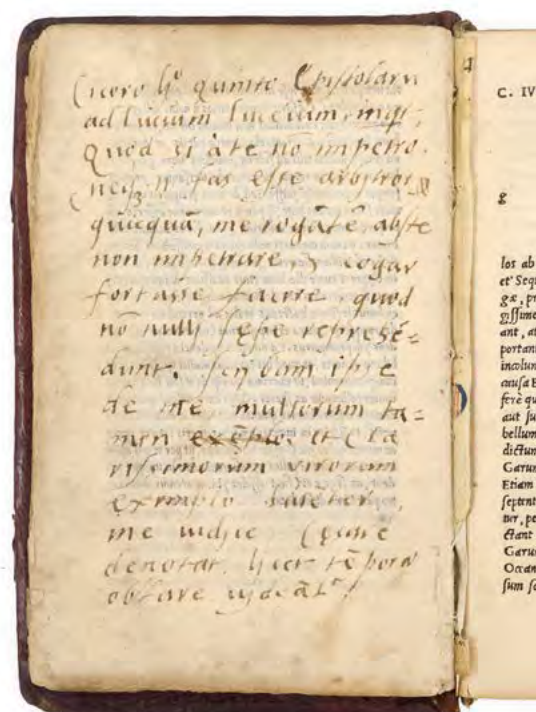 Cicero li.º quinto Epistolarū
ad Lucium Lucceium, inqt,
Quod si à te nō impetro
quicquā, me rogātē, abste
non impetrare, & cogar
fortasse facere, quod
nō nulli sepe represē=
dunt. scribam ipse
de me, multorum ta=
men exēplo, et Cla
rissimorum virorum
exemplo
me
denotat, licet tēpora
obstare
C. IV
g
los ab
et Sequ
gæ, pr
gissime
ant, at
portant
incolun
causa B
ferè qu
aut su
bellum
dictum
Garum
Etiam
septent
tur, pe
ctant
Garu
Ocean
sum sc